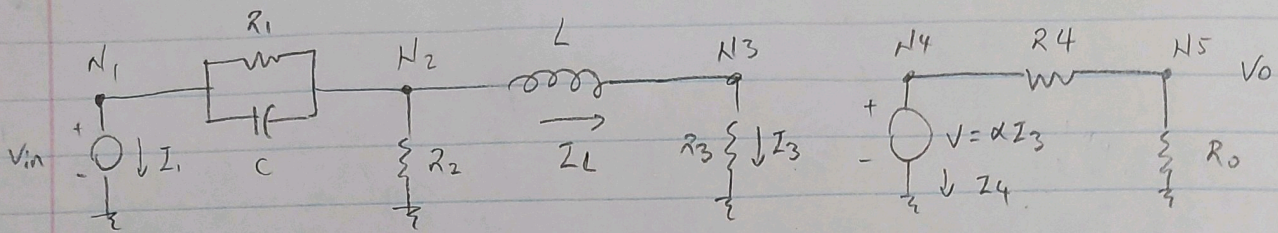 R1 L
N1 N2 N3 N4 R4 N5 Vo
+ +
Vin I1 C R2 IL R3 I3 V=αI3 Ro
- -
I4